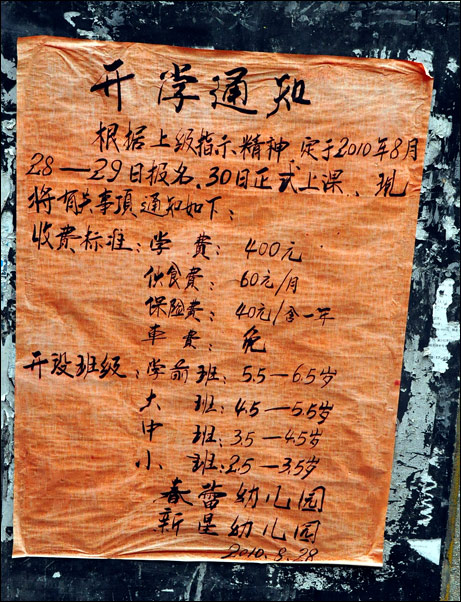 开学通知
根据上级指示、精神 定于2010年8月
28—29日报名、30日正式上课、现
将有关事项通知如下：
收费标准：学 费： 400元
伙食费： 60元/月
保险费： 40元/含一年
车 费： 免
开设班级：学前班：5.5—6.5岁
大 班：4.5—5.5岁
中 班：3.5—4.5岁
小 班：2.5—3.5岁
春蕾幼儿园
新星幼儿园
2010.8.28